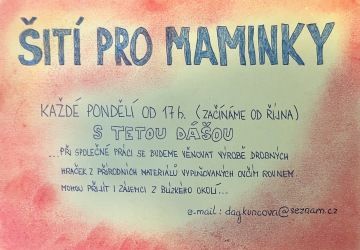 ŠITÍ PRO MAMINKY
KAŽDÉ PONDĚLÍ OD 17h. (ZAČÍNÁME OD ŘÍJNA)
S TETOU DÁŠOU
...PŘI SPOLEČNÉ PRÁCI SE BUDEME VĚNOVAT VÝROBĚ DROBNÝCH
HRAČEK Z PŘÍRODNÍCH MATERIÁLŮ VYPLŇOVANÝCH OVČÍM ROUNEM.
MOHOU PŘIJÍT I ZÁJEMCI Z BLÍZKÉHO OKOLÍ...
e-mail: dagkuncova@seznam.cz